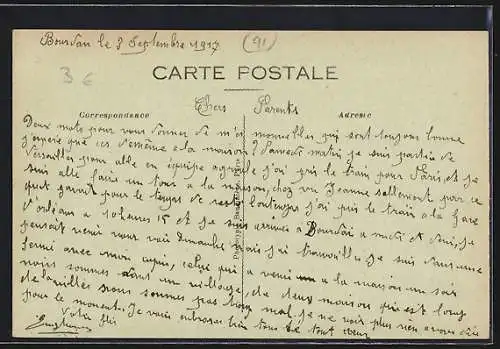 Bourdan le 3 Septembre 1917 (91)
3 €
CARTE POSTALE
Chers Parents
Correspondance Adresse
Deux mots pour vous donner de mes nouvelles qui sont toujours bonne
j'espère que ces de même a la maison? Samedi matin je suis partie de
Versailles pour alle en équipe agricole j'ai pris le train pour Paris et je
suis allé faire un tour a la maison chez Jeanne sellement par ce
que javait pour le temps de reste longtemps j'ai pris le train a la gare
d'orléans a 10 heures 15 et je suis arrivée a Bourdan a midi et demi, je
pensait venir vous voir Dimanche mais j'ai travailler je suis dans une
fermé avec mon copin, celui qui a venu a la maison un soir
nous sommes dans un village de deux maison qui est loug
de la villes nous sommes pas trop mal je ne vois plus rien a vous dire
pour le moment. Je vais embrasse bien tous de tout cœur
Votre fils